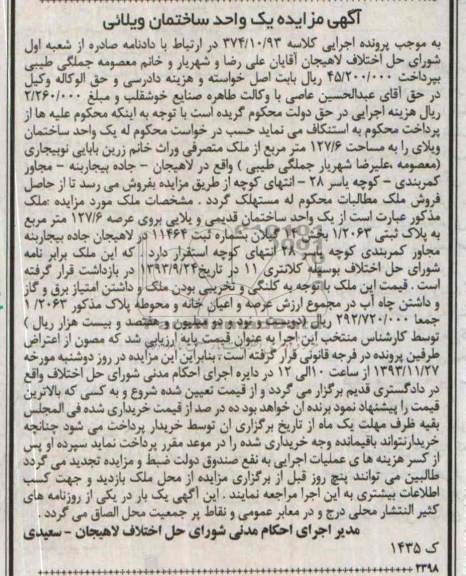 آگهی مزایده یک واحد ساختمان ویلائی
به موجب پرونده اجرایی کلاسه ۳۷۴/۱۰/۹۳ در ارتباط با دادنامه صادره از شعبه اول
شورای حل اختلاف لاهیجان آقایان علی رضا و شهریار و خانم معصومه جملگی طیبی
بپرداخت ۴۵/۲۰۰/۰۰۰ ریال بابت اصل خواسته و هزینه دادرسی و حق الوکاله وکیل
در حق آقای عبدالحسین عاصی با وکالت طاهره صنایع خوشقلب و مبلغ ۲/۲۶۰/۰۰۰
ریال هزینه اجرایی در حق دولت محکوم گریده است با توجه به اینکه محکوم علیه ها از
پرداخت محکوم به استنکاف می نماید حسب در خواست محکوم له یک واحد ساختمان
ویلای را به مساحت ۱۲۷/۶ متر مربع از ملک متصرفی وراث خانم زرین بابایی نوبیجاری
(معصومه ،علیرضا شهریار جملگی طیبی ) واقع در لاهیجان – جاده بیجاربنه – مجاور
کمربندی – کوچه یاسر ۲۸ – انتهای کوچه از طریق مزایده بفروش می رسد تا از حاصل
فروش ملک مطالبات محکوم له مستهلک گردد . مشخصات ملک مورد مزایده :ملک
مذکور عبارت است از یک واحد ساختمان قدیمی و یلایی بروی عرصه ۱۲۷/۶ متر مربع
به پلاک ثبتی ۱/۲۰۶۳ گیلان بشماره ثبت ۱۱۴۶۴ در لاهیجان جاده بیجاربنه
مجاور کمربندی کوچه یاسر ۲۸ انتهای کوچه استقرار دارد . که این ملک برابر نامه
شورای حل اختلاف بوسیله کلانتری ۱۱ در تاریخ۱۳۹۳/۹/۲۴ در بازداشت قرار گرفته
است . قیمت این ملک با توجه به کلنگی و تخریبی بودن ملک و داشتن امتیاز برق و گاز
و داشتن چاه آب در مجموع ارزش عرصه و اعیان خانه و محوطه پلاک مذکور ۱/۲۰۶۳
جمعا ۲۹۲/۷۲۰/۰۰۰ ریال (دویست و نود و دو میلیون و هفتصد و بیست هزار ریال )
توسط کارشناس منتخب این اجرا به عنوان قیمت پایه ارزیابی شد که مصون از اعتراض
طرفین پرونده در فرجه قانونی قرار گرفته است . بنابراین این مزایده در روز دوشنبه مورخه
۱۳۹۳/۱۱/۲۷ از ساعت ۱۰الی ۱۲ در دایره اجرای احکام مدنی شورای حل اختلاف واقع
در دادگستری قدیم برگزار می گردد و از قیمت تعیین شده شروع و به کسی که بالاترین
قیمت را پیشنهاد نمود برنده ان خواهد بود ده در صد از قیمت خریداری شده فی المجلس
بقیه ظرف مهلت یک ماه از تاریخ برگزاری ان توسط خریدار پرداخت می شود چنانچه
خریدارنتواند باقیمانده وجه خریداری شده را در موعد مقرر پرداخت نماید سپرده او پس
از کسر هزینه ها ی عملیات اجرایی به نفع صندوق دولت ضبط و مزایده تجدید می گردد
طالبین می توانند پنج روز قبل از برگزاری مزایده از محل ملک بازدید و جهت کسب
اطلاعات بیشتری به این اجرا مراجعه نمایند . این آگهی یک بار در یکی از روزنامه های
کثیر النتشار محلی درج و در معابر عمومی و نقاط پر جمعیت محل الصاق می گردد .
مدیر اجرای احکام مدنی شورای حل اختلاف لاهیجان – سعیدی
ک ۱۴۳۵
۲۳۹۸